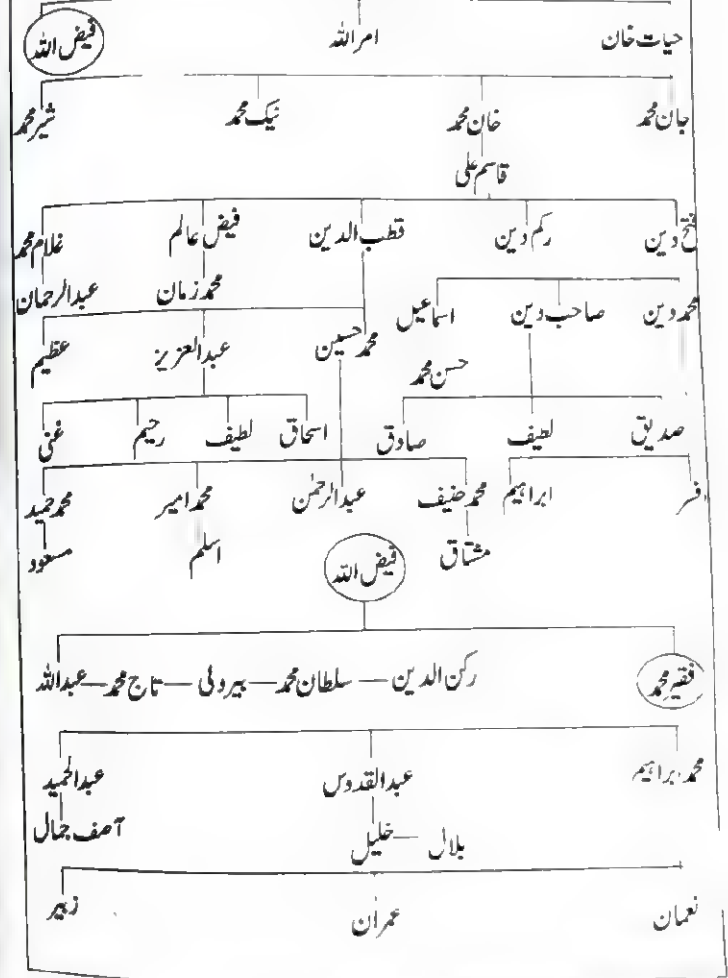 حیات خان امر اللہ فیض اللہ
جان محمد خان محمد نیک محمد شیر محمد
قاسم علی
فتح دین رکم دین قطب الدین فیض عالم غلام محمد
محمد دین صاحب دین اسماعیل محمد زمان عبدالرحمان
محمد حسین عبدالعزیز عظیم
حسن محمد
صدیق لطیف صادق اسحاق لطیف رحیم غنی
افسر ابراہیم محمد حنیف عبدالرحمٰن محمد امیر محمد حمید
مشتاق اسلم مسعود
فیض اللہ
فقیر محمد رکن الدین — سلطان محمد — بیروئی — تاج محمد — عبداللہ
محمد ابراہیم عبدالقدوس عبدالحمید
بلال — خلیل آصف جمال
نعمان عمران زبیر